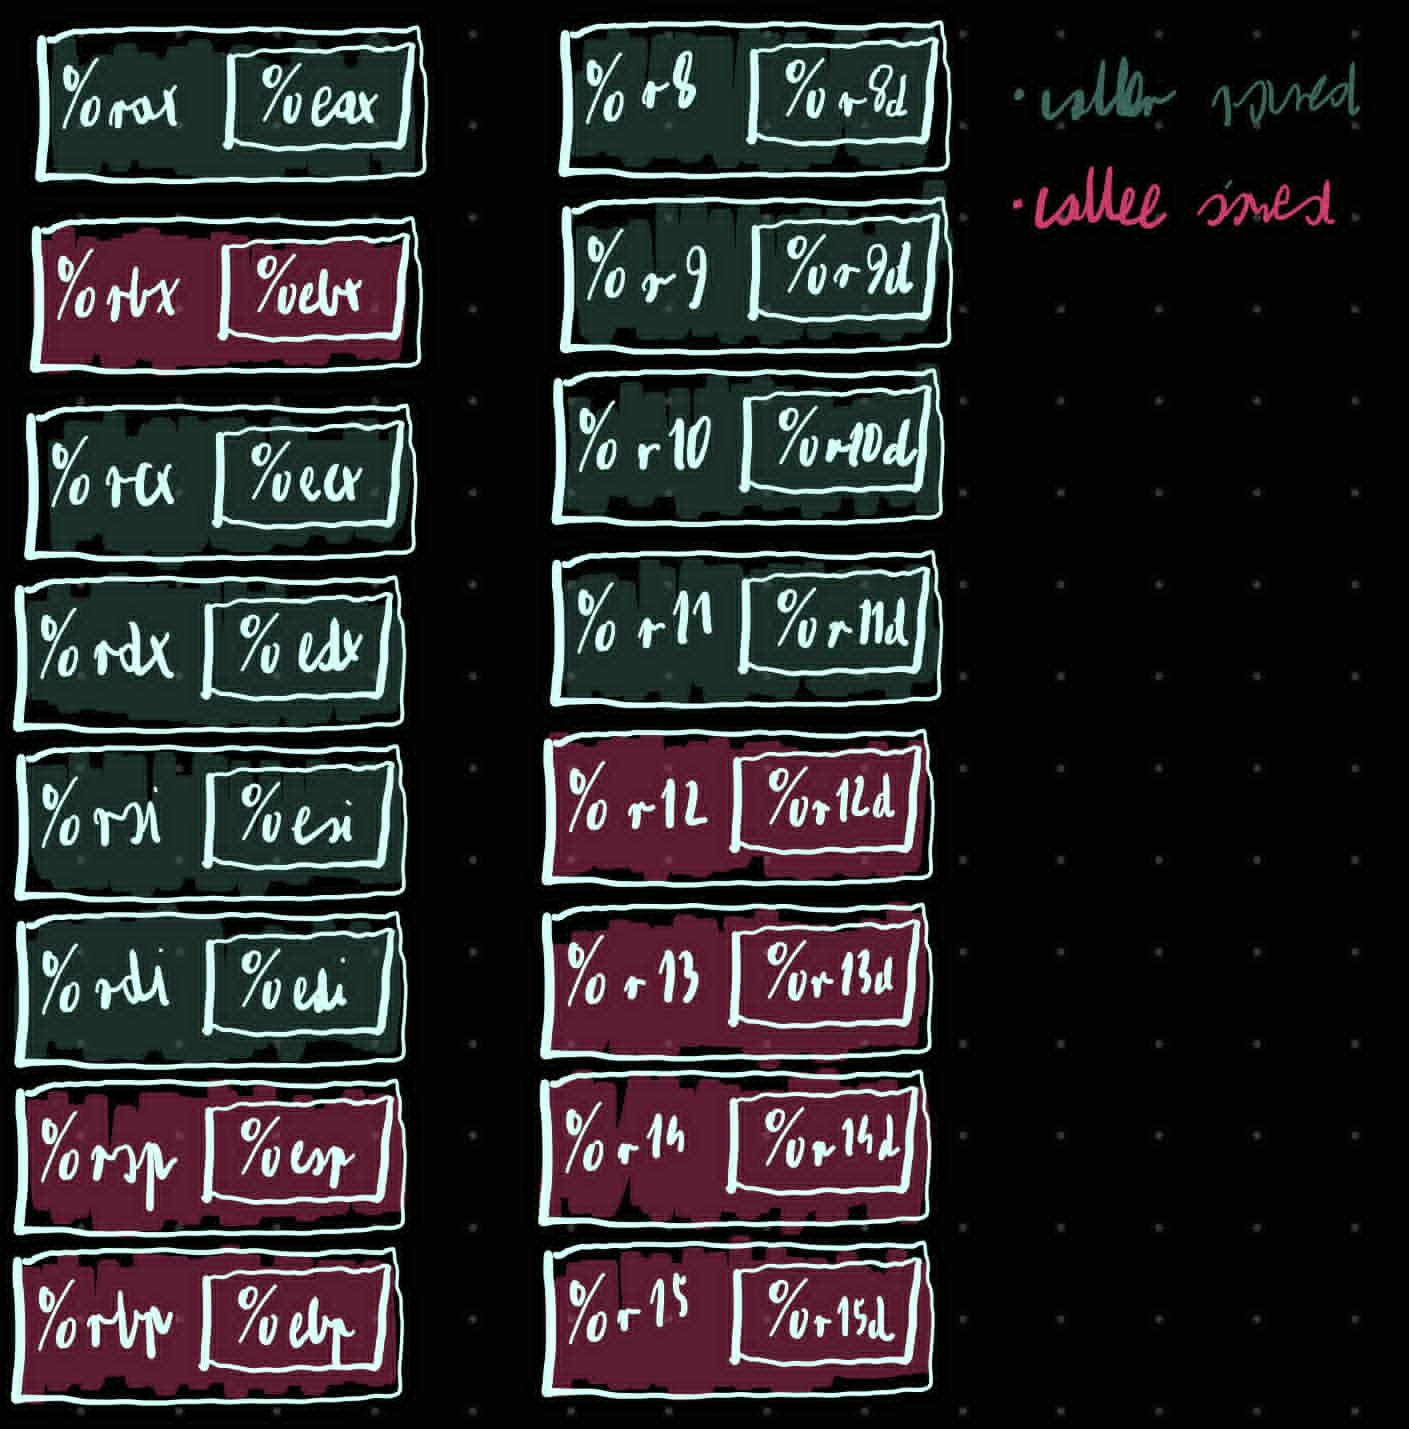 %rax %eax
%rbx %ebx
%rcx %ecx
%rdx %edx
%rsi %esi
%rdi %edi
%rsp %esp
%rbp %ebp
%r8 %r8d
%r9 %r9d
%r10 %r10d
%r11 %r11d
%r12 %r12d
%r13 %r13d
%r14 %r14d
%r15 %r15d
• caller saved
• callee saved